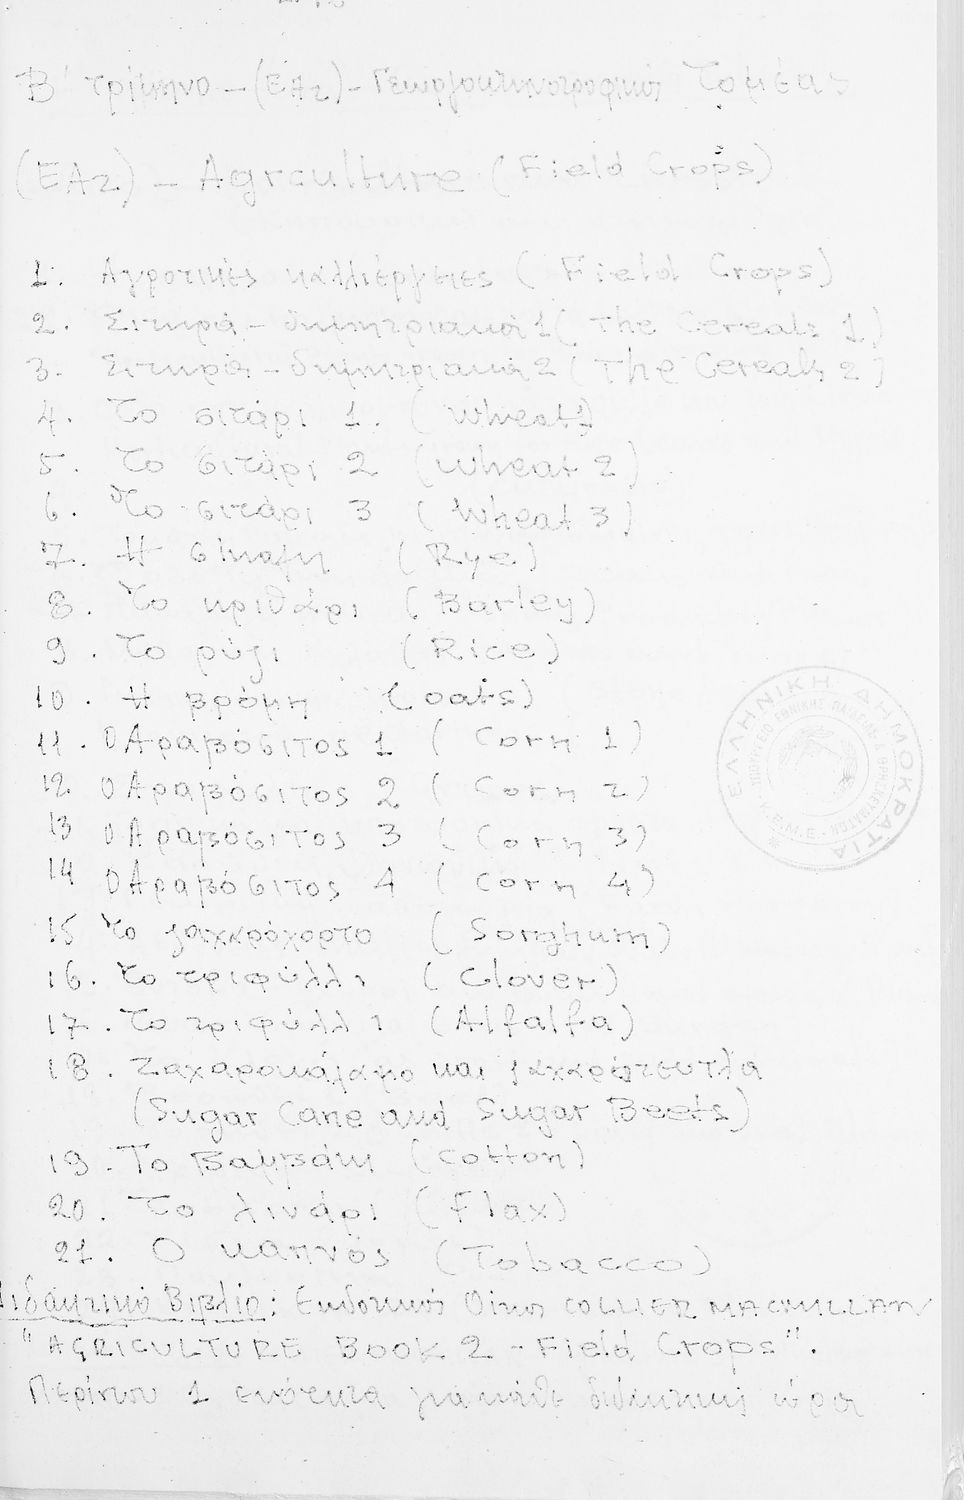 Β' τρίμηνο - (ΕΑ2) - Γεωργοκτηνοτροφικός Τομέας
(ΕΑ2) - Agrculture (Field Crops)
1. Αγροτικές καλλιέργειες (Field Crops)
2. Σιτηρά - δημητριακά 1 (The Cereals 1)
3. Σιτηρά - δημητριακά 2 (The Cereals 2)
4. Το σιτάρι 1. (Wheat 1)
5. Το σιτάρι 2 (Wheat 2)
6. Το σιτάρι 3 (Wheat 3)
7. Η σίκαλη (Rye)
8. Το κριθάρι (Barley)
9. Το ρύζι (Rice)
10. Η βρόμη (oats)
11. Ο Αραβόσιτος 1 (Corn 1)
12. Ο Αραβόσιτος 2 (Corn 2)
13 Ο Αραβόσιτος 3 (Corn 3)
14 Ο Αραβόσιτος 4 (Corn 4)
15 Το ζαχαρόχορτο (Sorghum)
16. Το τριφύλλι (Clover)
17. Το τριφύλλι (Alfalfa)
18. Ζαχαροκάλαμο και ζαχαρότευτλα
(Sugar Cane and Sugar Beets)
19. Το Βαμβάκι (Cotton)
20. Το λινάρι (Flax)
21. Ο καπνός (Tobacco)
Διδακτικό Βιβλίο: Εκδοτικός Οίκος COLLIER MACMILLAN
"AGRICULTURE BOOK 2 - Field Crops".
Περίπου 1 ενότητα για κάθε διδακτική ώρα
ΕΛΛΗΝΙΚΗ ΔΗΜΟΚΡΑΤΙΑ
ΥΠΟΥΡΓΕΙΟ ΕΘΝΙΚΗΣ ΠΑΙΔΕΙΑΣ & ΘΡΗΣΚΕΥΜΑΤΩΝ